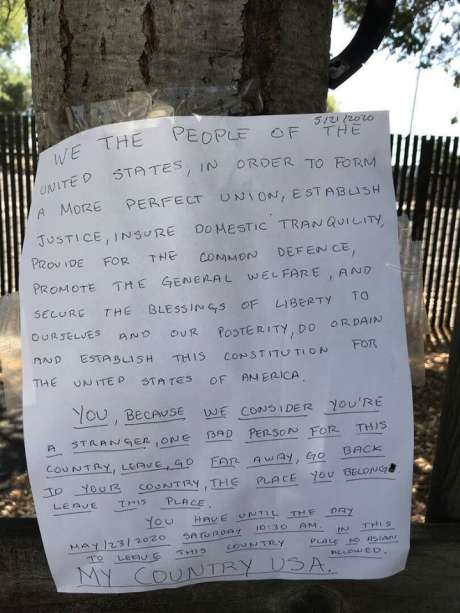 5/21/2020
WE THE PEOPLE OF THE
UNITED STATES, IN ORDER TO FORM
A MORE PERFECT UNION, ESTABLISH
JUSTICE, INSURE DOMESTIC TRANQUILITY,
PROVIDE FOR THE COMMON DEFENCE,
PROMOTE THE GENERAL WELFARE, AND
SECURE THE BLESSINGS OF LIBERTY TO
OURSELVES AND OUR POSTERITY, DO ORDAIN
AND ESTABLISH THIS CONSTITUTION FOR
THE UNITED STATES OF AMERICA.
YOU, BECAUSE WE CONSIDER YOU'RE
A STRANGER, ONE BAD PERSON FOR THIS
COUNTRY, LEAVE, GO FAR AWAY, GO BACK
TO YOUR COUNTRY, THE PLACE YOU BELONG
LEAVE THIS PLACE.
YOU HAVE UNTIL THE DAY
MAY/23/2020 SATURDAY 10:30 AM. IN THIS
TO LEAVE THIS COUNTRY PLACE NO ASIAN
ALLOWED.
MY COUNTRY USA.